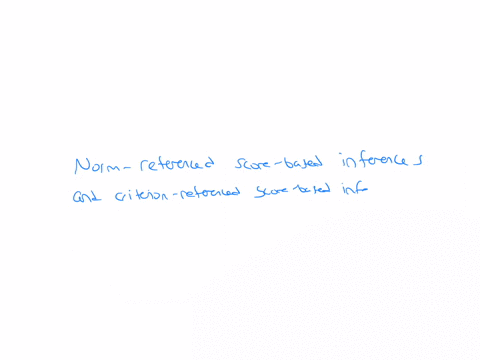 Norm-referenced score-based inferences
and criterion-referenced score-based inf